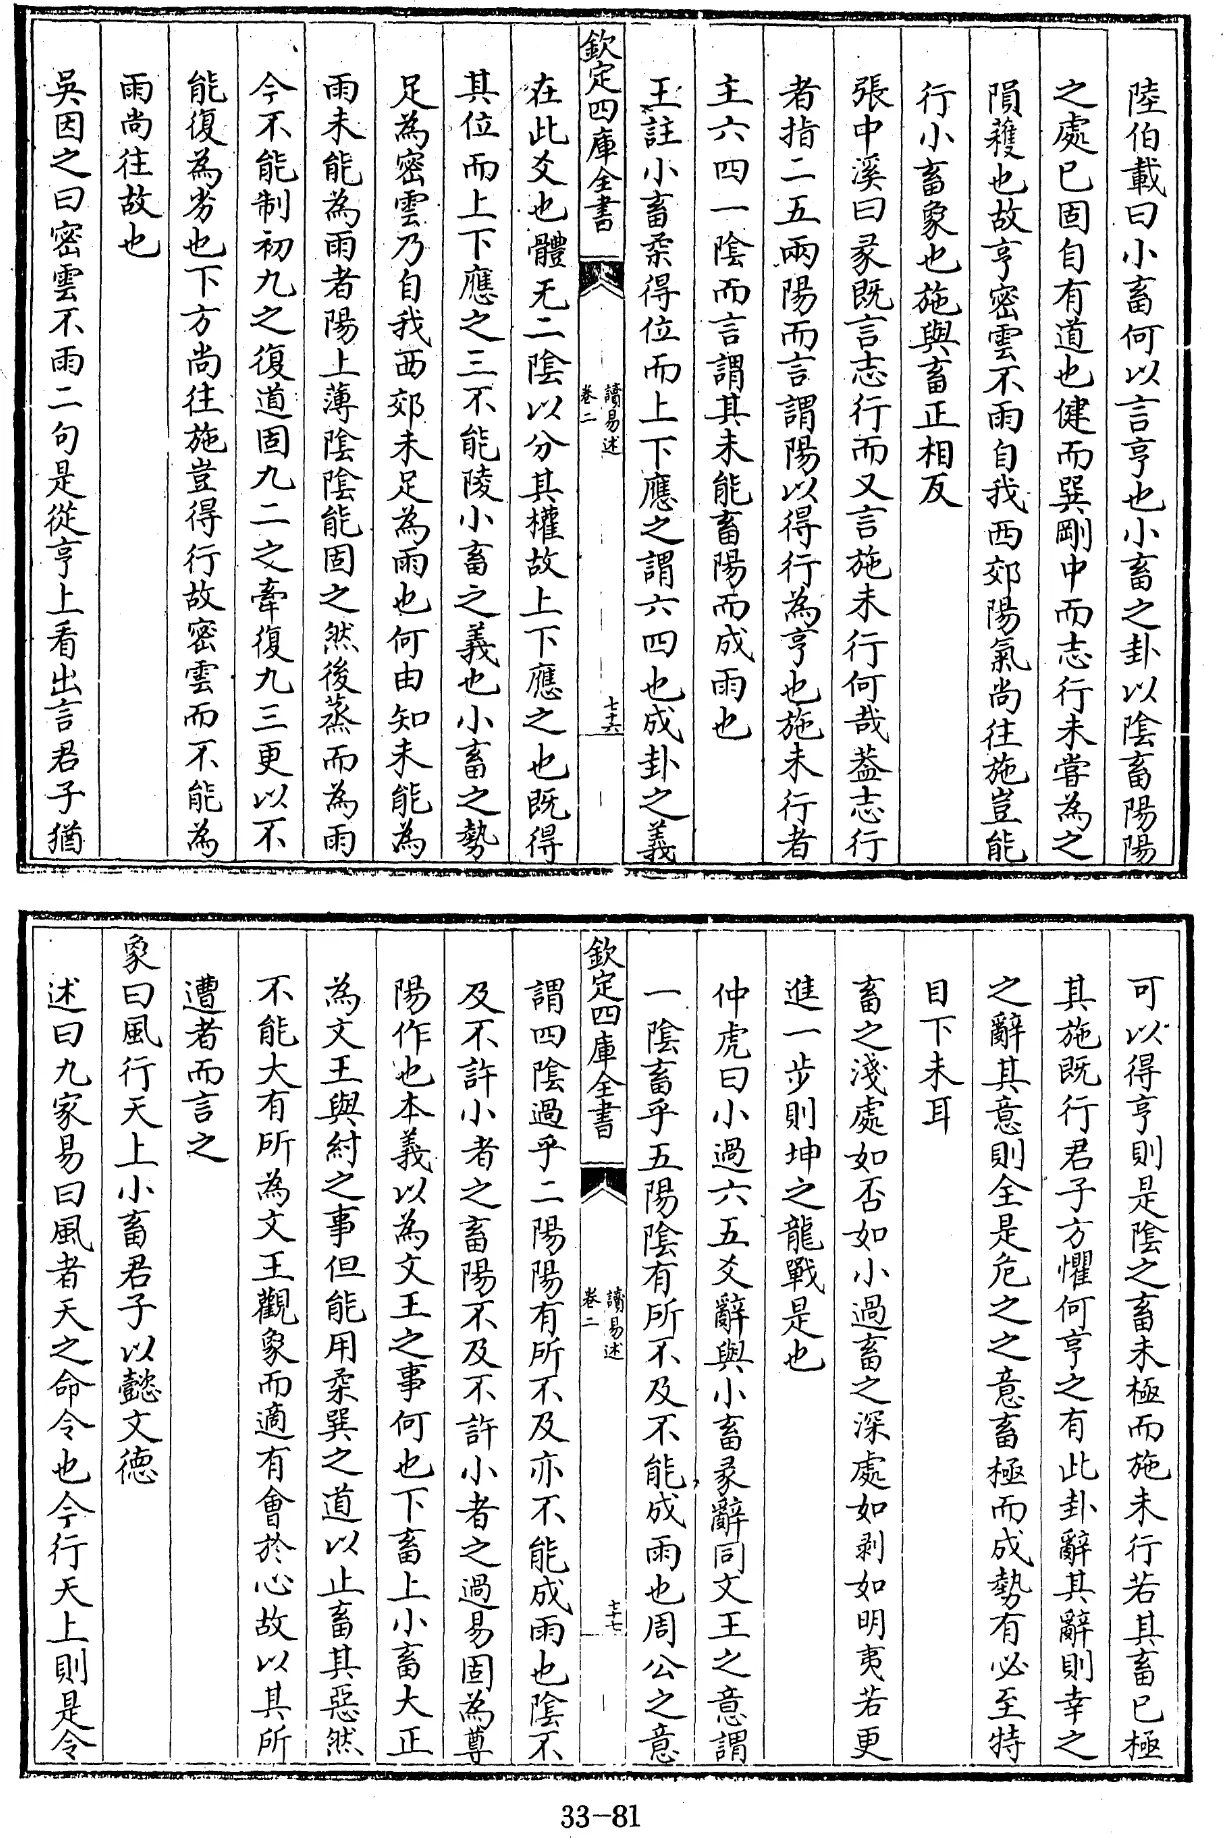 陸伯載曰小畜何以言亨也小畜之卦以陰畜陽陽
之處已固自有道也健而巽剛中而志行未嘗為之
隕穫也故亨密雲不雨自我西郊陽氣尚往施豈能
行小畜象也施與畜正相反
張中溪曰彖既言志行而又言施未行何哉葢志行
者指二五兩陽而言謂陽以得行為亨也施未行者
主六四一陰而言謂其未能畜陽而成雨也
王註小畜柔得位而上下應之謂六四也成卦之義
欽定四庫全書
讀易述
卷二
七十六
在此爻也體无二陰以分其權故上下應之也既得
其位而上下應之三不能陵小畜之義也小畜之勢
足為密雲乃自我西郊未足為雨也何由知未能為
雨未能為雨者陽上薄陰陰能固之然後蒸而為雨
今不能制初九之復道固九二之牽復九三更以不
能復為劣也下方尚往施豈得行故密雲而不能為
雨尚往故也
吳因之曰密雲不雨二句是從亨上看出言君子猶
可以得亨則是陰之畜未極而施未行若其畜已極
其施既行君子方懼何亨之有此卦辭其辭則幸之
之辭其意則全是危之之意畜極而成勢有必至特
目下未耳
畜之淺處如否如小過畜之深處如剥如明夷若更
進一步則坤之龍戰是也
仲虎曰小過六五爻辭與小畜彖辭同文王之意謂
一陰畜乎五陽陰有所不及不能成雨也周公之意
欽定四庫全書
讀易述
卷二
七十七
謂四陰過乎二陽陽有所不及亦不能成雨也陰不
及不許小者之畜陽不及不許小者之過易固為尊
陽作也本義以為文王之事何也下畜上小畜大正
為文王與紂之事但能用柔巽之道以止畜其惡然
不能大有所為文王觀象而適有會於心故以其所
遭者而言之
象曰風行天上小畜君子以懿文德
述曰九家易曰風者天之命令也今行天上則是令
33-81